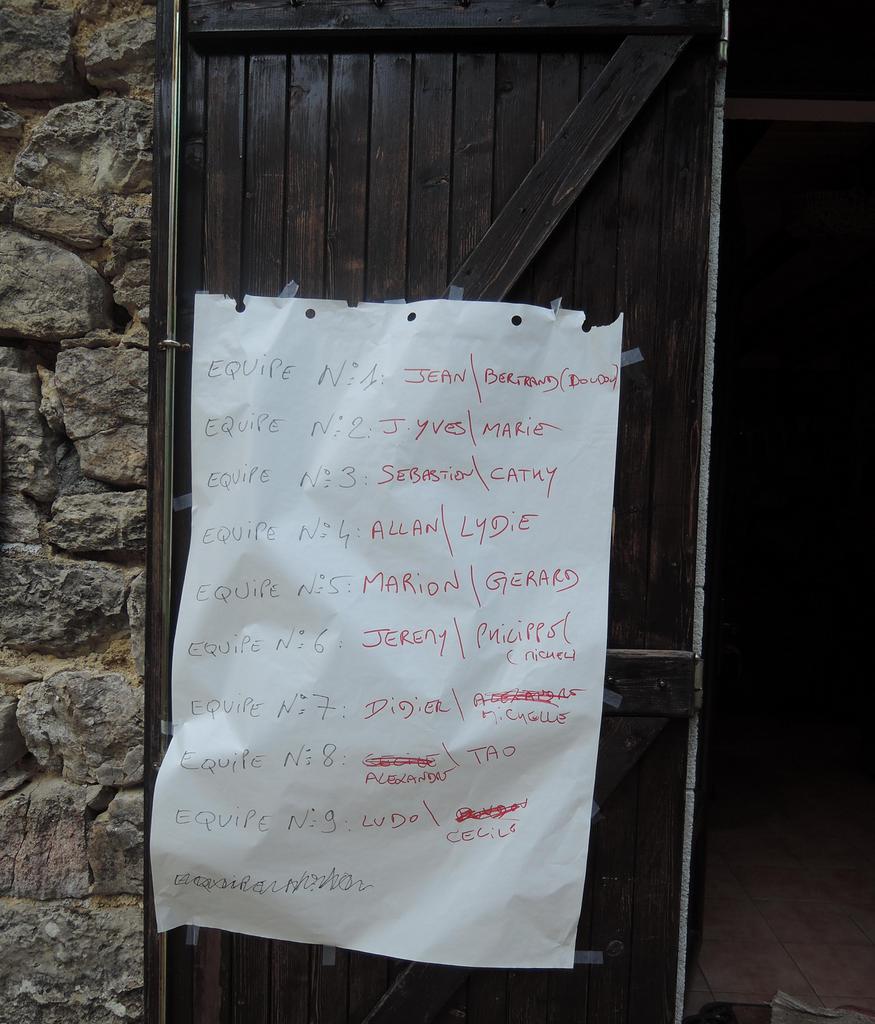 EQUIPE N°1: JEAN\BERTRAND(DOUDOU
EQUIPE N°2: J.YVES\MARIE
EQUIPE N°3: SEBASTIEN\CATHY
EQUIPE N°4: ALLAN\LYDIE
EQUIPE N°5: MARION\GERARD
EQUIPE N°6: JEREMY\PHILIPPE(
(MICHEL)
EQUIPE N°7: DIDIER\ALEXANDRE
MICHELLE
EQUIPE N°8: CECILE\TAO
ALEXANDRE
EQUIPE N°9: LUDO\
CECILE
EQUIPE